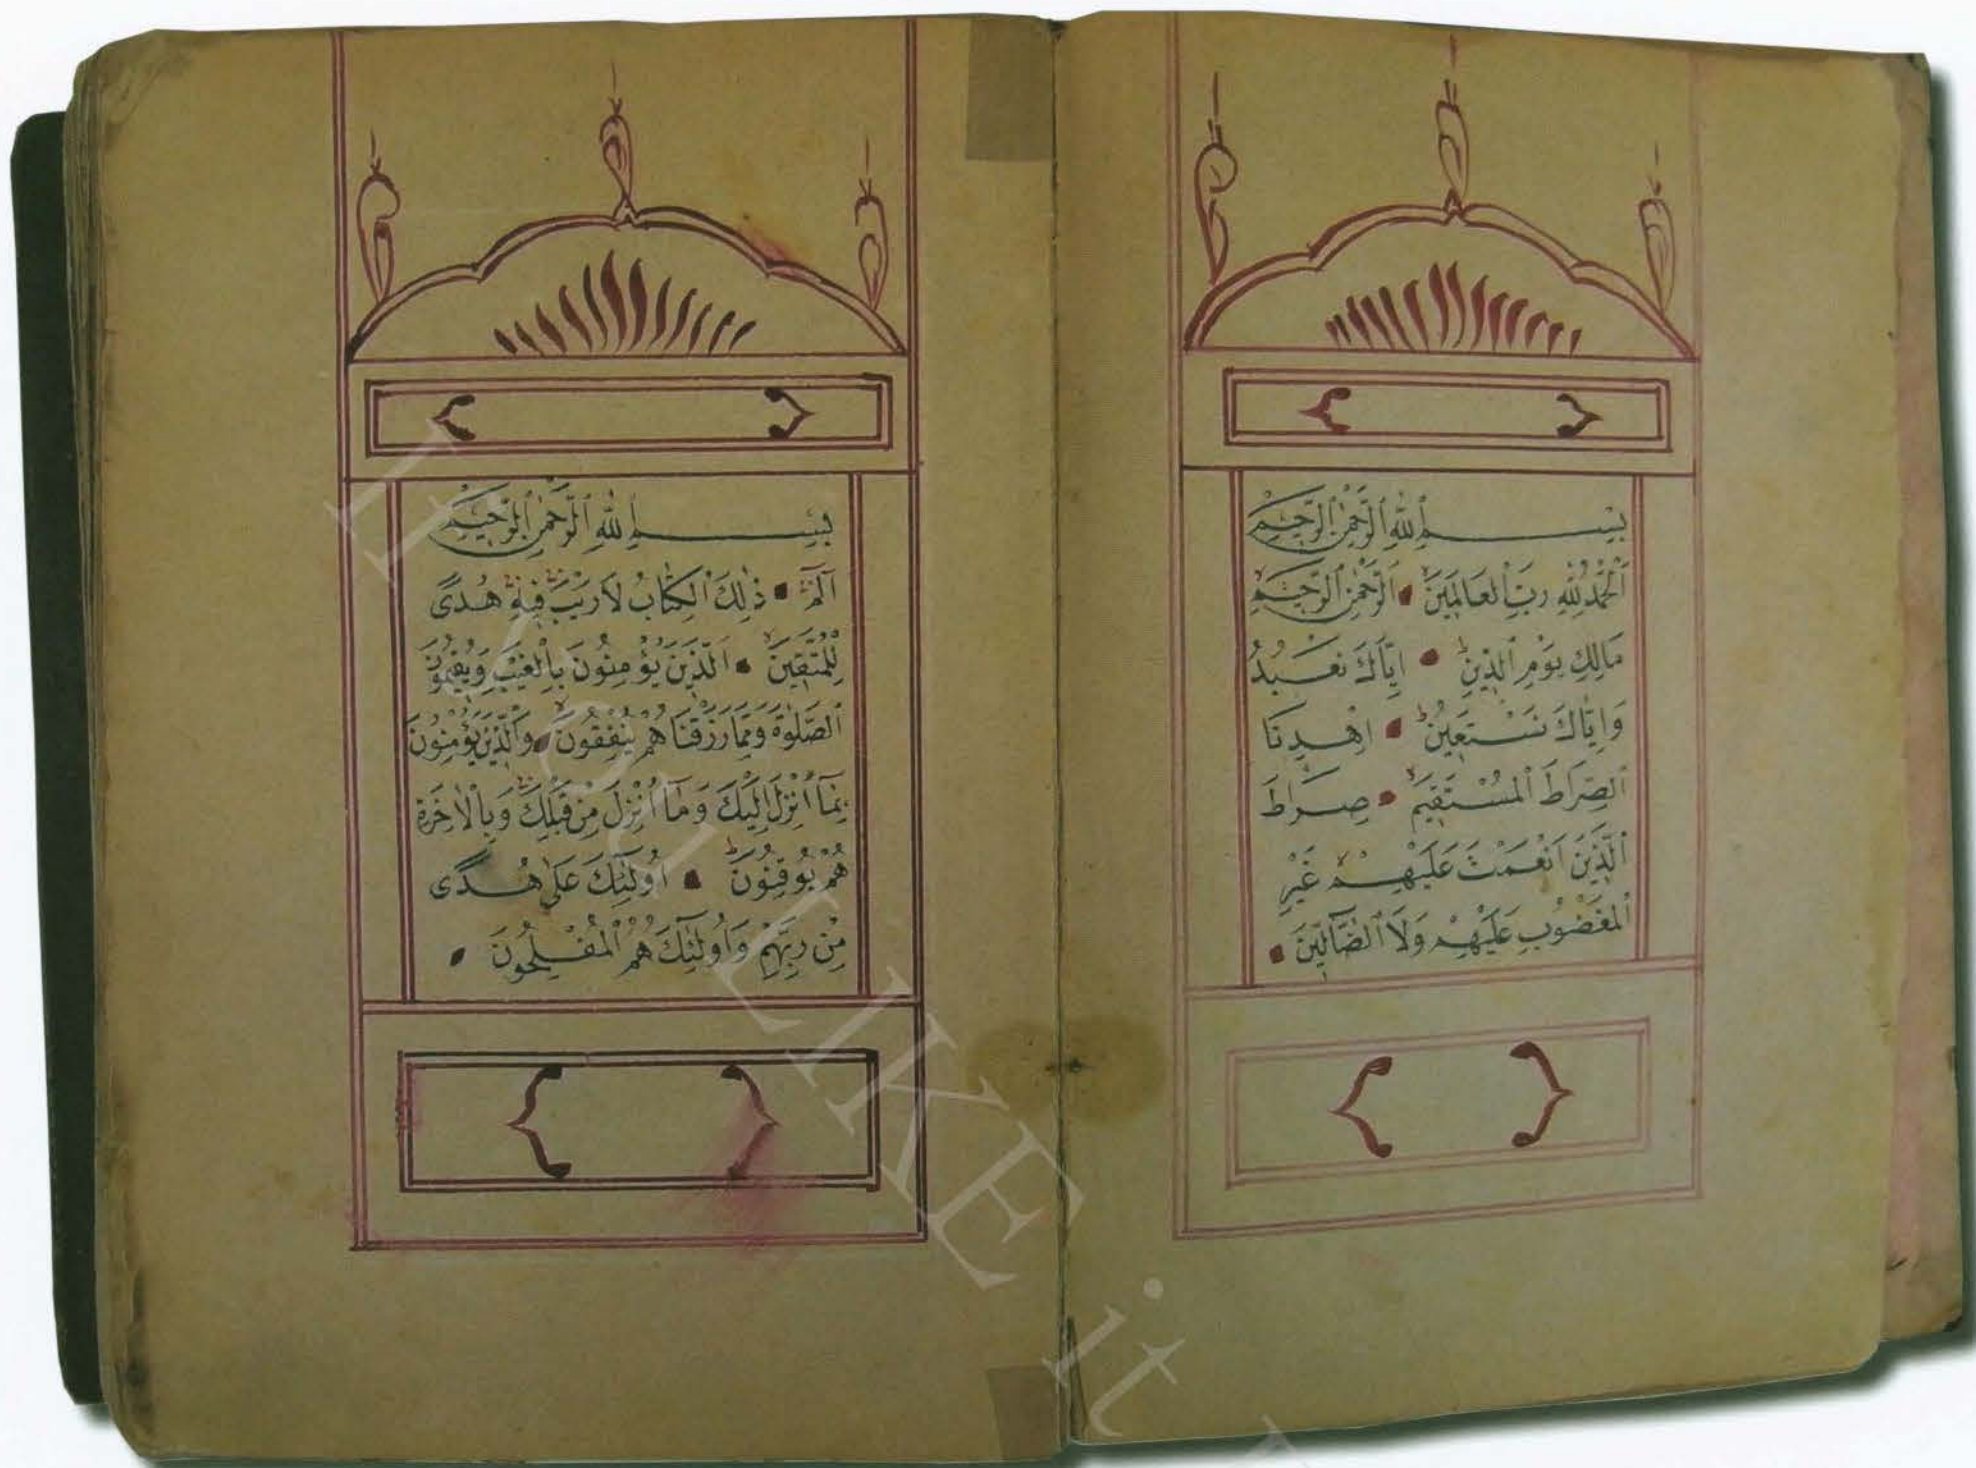 بِسْمِ اللّٰهِ الرَّحْمٰنِ الرَّحِيْمِ
اَلْحَمْدُ لِلّٰهِ رَبِّ الْعَالَمِيْنَ اَلرَّحْمٰنِ الرَّحِيْمِ
مَالِكِ يَوْمِ الدِّيْنِ اِيَّاكَ نَعْبُدُ
وَاِيَّاكَ نَسْتَعِيْنُ اِهْدِنَا
الصِّرَاطَ الْمُسْتَقِيْمَ صِرَاطَ
الَّذِيْنَ اَنْعَمْتَ عَلَيْهِمْ غَيْرِ
الْمَغْضُوْبِ عَلَيْهِمْ وَلَا الضَّآلِّيْنَ
بِسْمِ اللّٰهِ الرَّحْمٰنِ الرَّحِيْمِ
الٓمٓ ذٰلِكَ الْكِتَابُ لَا رَيْبَ فِيْهِ هُدًى
لِلْمُتَّقِيْنَ اَلَّذِيْنَ يُؤْمِنُوْنَ بِالْغَيْبِ وَيُقِيْمُوْنَ
الصَّلٰوةَ وَمِمَّا رَزَقْنَاهُمْ يُنْفِقُوْنَ وَالَّذِيْنَ يُؤْمِنُوْنَ
بِمَآ اُنْزِلَ اِلَيْكَ وَمَآ اُنْزِلَ مِنْ قَبْلِكَ وَبِالْاٰخِرَةِ
هُمْ يُوْقِنُوْنَ اُولٰٓئِكَ عَلٰى هُدًى
مِنْ رَبِّهِمْ وَاُولٰٓئِكَ هُمُ الْمُفْلِحُوْنَ